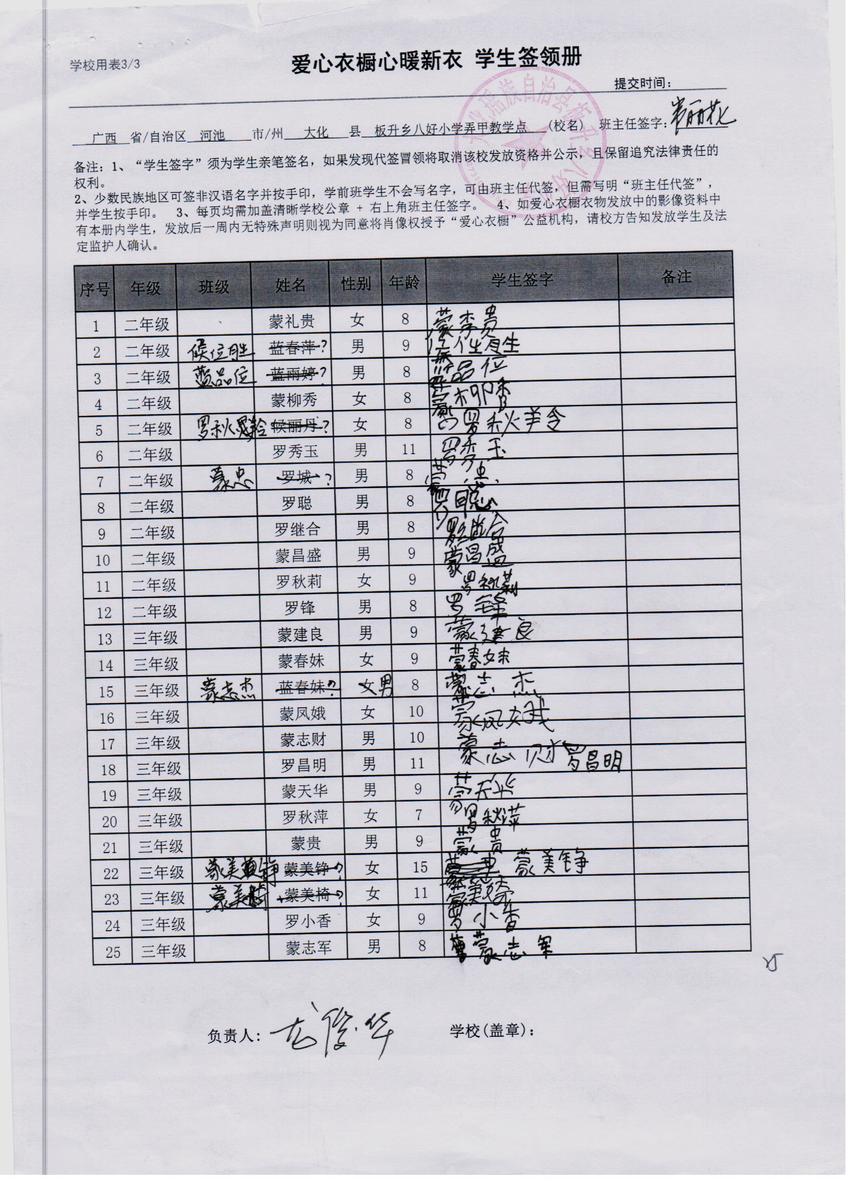 学校用表3/3
爱心衣橱心暖新衣 学生签领册
提交时间:
广西 省/自治区 河池 市/州 大化 县 板升乡八好小学弄甲教学点 (校名) 班主任签字:
备注:1、“学生签字”须为学生亲笔签名,如果发现代签冒领将取消该校发放资格并公示,且保留追究法律责任的
权利。
2、少数民族地区可签非汉语名字并按手印,学前班学生不会写名字,可由班主任代签,但需写明“班主任代签”,
并学生按手印。 3、每页均需加盖清晰学校公章 + 右上角班主任签字。 4、如爱心衣橱衣物发放中的影像资料中
有本册内学生,发放后一周内无特殊声明则视为同意将肖像权授予“爱心衣橱”公益机构,请校方告知发放学生及法
定监护人确认。
序号 年级 班级 姓名 性别 年龄 学生签字 备注
1 二年级 蒙礼贵 女 8 蒙李贵
2 二年级 候位胜 蓝春萍? 男 9
3 二年级 蓝品位 蓝雨婷? 男 8 蓝品位
4 二年级 蒙柳秀 女 8
5 二年级 候丽丹? 女 8
6 二年级 罗秀玉 男 11 罗秀玉
7 二年级 蒙忠 罗城? 男 8 蒙忠
8 二年级 罗聪 男 8 罗聪
9 二年级 罗继合 男 8 罗继合
10 二年级 蒙昌盛 男 9 蒙昌盛
11 二年级 罗秋莉 女 9 罗秋莉
12 二年级 罗锋 男 8 罗锋
13 三年级 蒙建良 男 9 蒙建良
14 三年级 蒙春妹 女 9 蒙春妹
15 三年级 蒙志杰 蓝春妹? 女男 8 蒙志杰
16 三年级 蒙凤娥 女 10 蒙凤娥
17 三年级 蒙志财 男 10 蒙志财
18 三年级 罗昌明 男 11 罗昌明
19 三年级 蒙天华 男 9 蒙天华
20 三年级 罗秋萍 女 7 罗秋萍
21 三年级 蒙贵 男 9 蒙贵
22 三年级 蒙美铮 蒙美铮? 女 15 蒙美铮
23 三年级 蒙美椅 蒙美椅? 女 11
24 三年级 罗小香 女 9 罗小香
25 三年级 蒙志军 男 8 蒙志军
25
负责人: 学校(盖章):